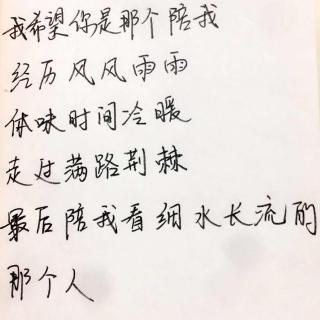 我希望你是那个陪我
经历风风雨雨
体味时间冷暖
走过满路荆棘
最后陪我看细水长流的
那个人